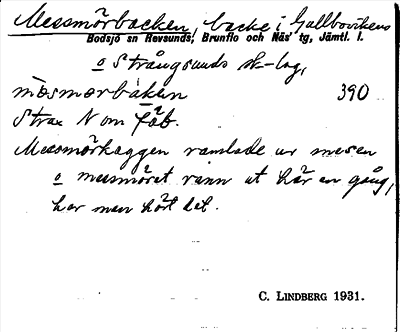 Messmörbacken, backe i Gallbovikens
Bodsjö sn Revsunds, Brunflo och Näs' tg, Jämtl. l.
o Strångsunds sk-lag,
mòsmorbàken 390
Strax N om fäb.
Messmörkaggen ramlade ur mesen
o messmöret rann ut här en gång,
har man hört det.
C. LINDBERG 1931.